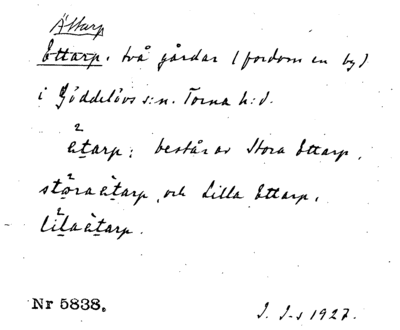 Ättarp
Ettarp, två gårdar (fordom en by)
i Gödelövs s:n. Torna h:d.
ètarp; består av Stora Ettarp,
stòraètarp och Lilla Ettarp,
lìlaètarp.
Nr 5838. I. I-s 1927.